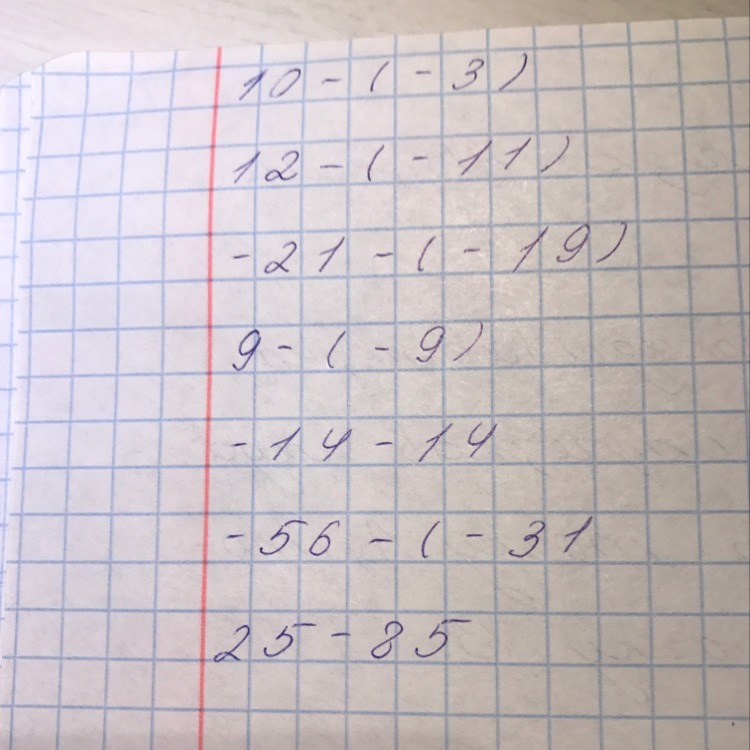 10 - ( - 3 )
12 - ( - 11 )
- 21 - ( - 19 )
9 - ( - 9 )
- 14 - 14
- 56 - ( - 31
25 - 85